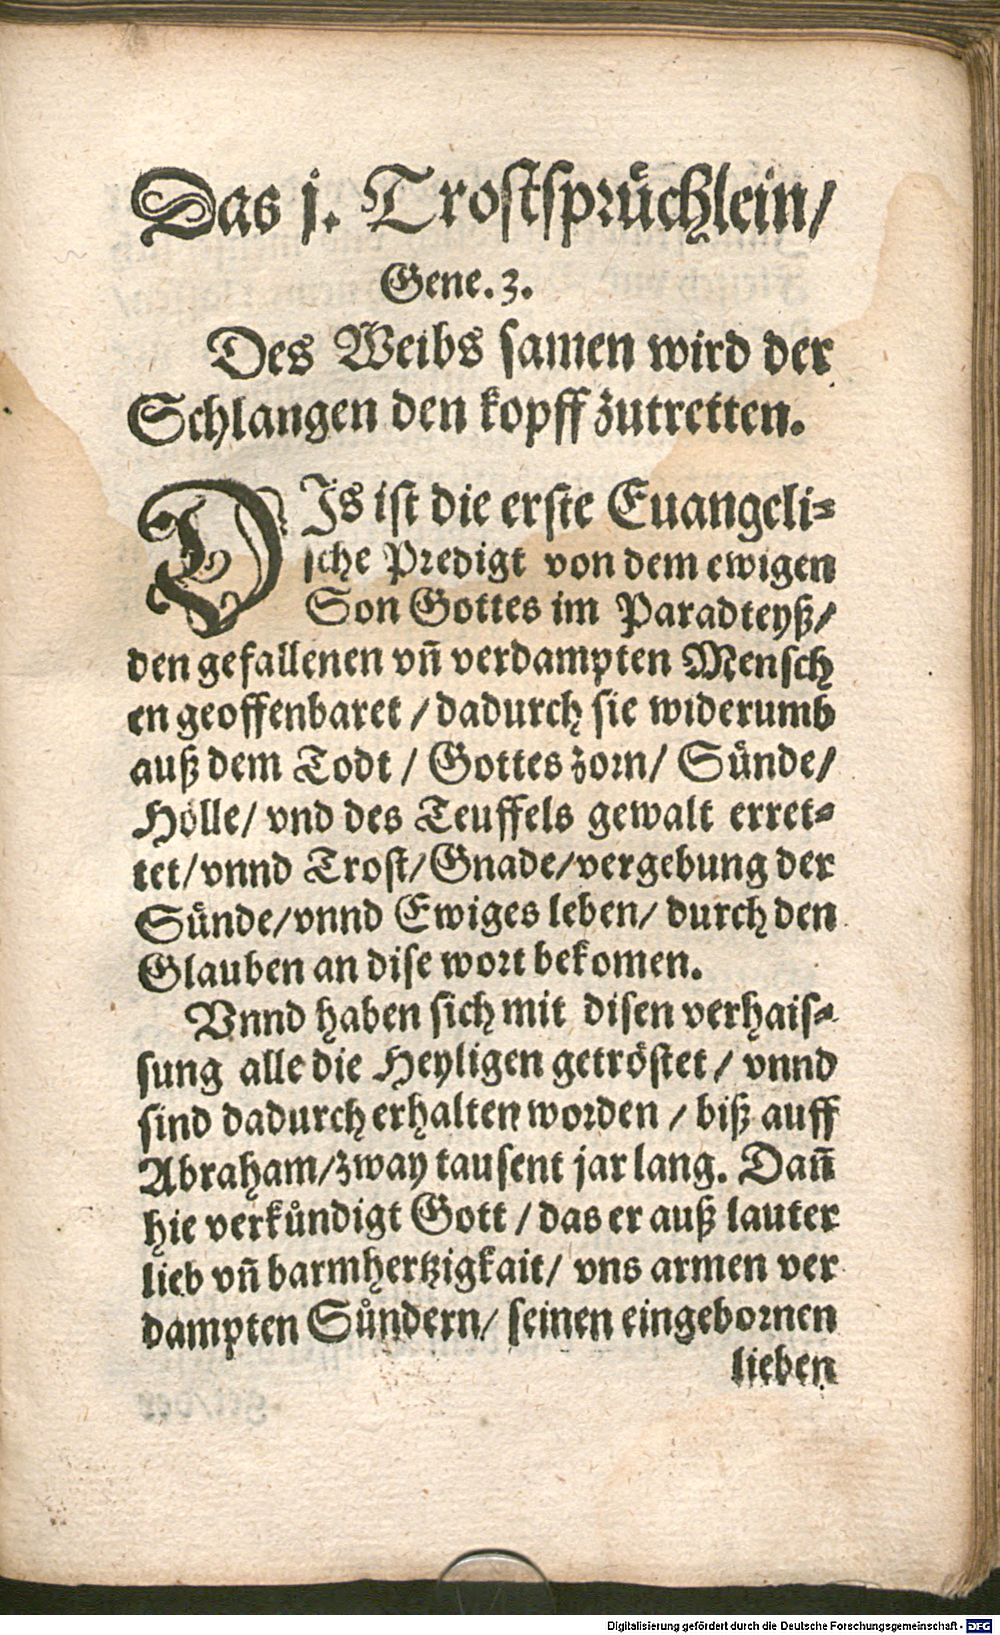 Das j. Trostsprüchlein/
Gene. 3.
Des Weibs samen wird der
Schlangen den kopff zutretten.
DIs ist die erste Euangeli⸗
sche Predigt von dem ewigen
Son Gottes im Paradteyß/
den gefallenen vñ verdampten Mensch
en geoffenbaret / dadurch sie widerumb
auß dem Todt / Gottes zorn/ Sünde/
Hölle/ vnd des Teuffels gewalt erret⸗
tet/ vnnd Trost/ Gnade/ vergebung der
Sünde/ vnnd Ewiges leben/ durch den
Glauben an dise wort bekomen.
Vnnd haben sich mit disen verhais⸗
sung alle die Heyligen getröstet / vnnd
sind dadurch erhalten worden / biß auff
Abraham/ zway tausent jar lang. Dañ
hie verkůndigt Gott / das er auß lauter
lieb vñ barmhertzigkait/ vns armen ver
dampten Sůndern/ seinen eingebornen
lieben
Digitalisierung gefördert durch die Deutsche Forschungsgemeinschaft - DFG